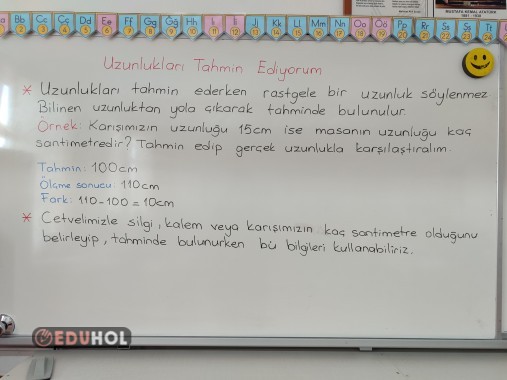 Bb Cc Çç Dd Ee Ff Gg Ğğ Hh Iı İi Jj Kk Ll Mm Nn Oo Öö Pp Rr Ss Şş Tt
MUSTAFA KEMAL ATATÜRK
Uzunlukları Tahmin Ediyorum
* Uzunlukları tahmin ederken rastgele bir uzunluk söylenmez
Bilinen uzunluktan yola çıkarak tahminde bulunulur.
Örnek: Karışımızın uzunluğu 15cm ise masanın uzunluğu kaç
santimetredir? Tahmin edip gerçek uzunlukla karşılaştıralım.
Tahmin: 100cm
Ölçme sonucu 110cm
Fark: 110-100 = 10cm
* Cetvelimizle silgi, kalem veya karışımızın kaç santimetre olduğunu
belirleyip, tahminde bulunurken bu bilgileri kullanabiliriz.
EDUHOL